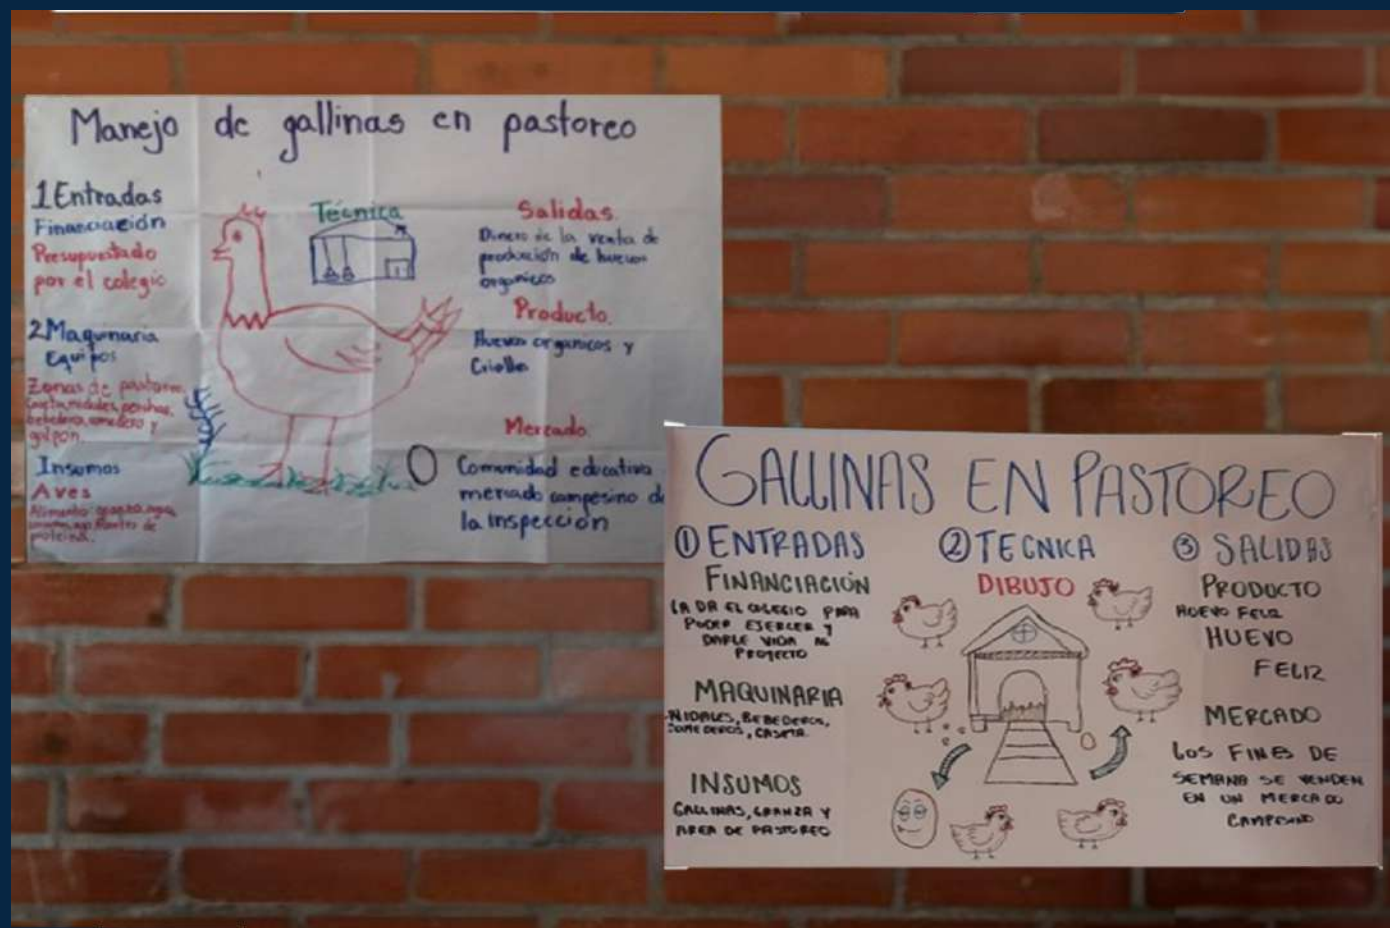 Manejo de gallinas en pastoreo
1 Entradas
Financiación
Presupuestado
por el colegio
2 Maquinaria
Equipos
Zonas de pastoreo,
nidales, perchas,
bebedero, comedero y
galpon.
Insumos
Aves
Alimento: granza, agua,
proteina.
Técnica
Salidas.
Dinero de la venta de
producción de huevos
organicos
Producto.
Huevos organicos y
Criollos
Mercado.
Comunidad educativa
mercado campesino de
la inspección
GALLINAS EN PASTOREO
① ENTRADAS
FINANCIACIÓN
LA DA EL COLEGIO PARA
PODER EJERCER Y
DARLE VIDA AL
PROYECTO
MAQUINARIA
NIDALES, BEBEDEROS,
COMEDEROS, CASETA.
INSUMOS
GALLINAS, GRANZA Y
AREA DE PASTOREO
② TECNICA
DIBUJO
③ SALIDAS
PRODUCTO
HUEVO FELIZ
HUEVO
FELIZ
MERCADO
LOS FINES DE
SEMANA SE VENDEN
EN UN MERCADO
CAMPESINO